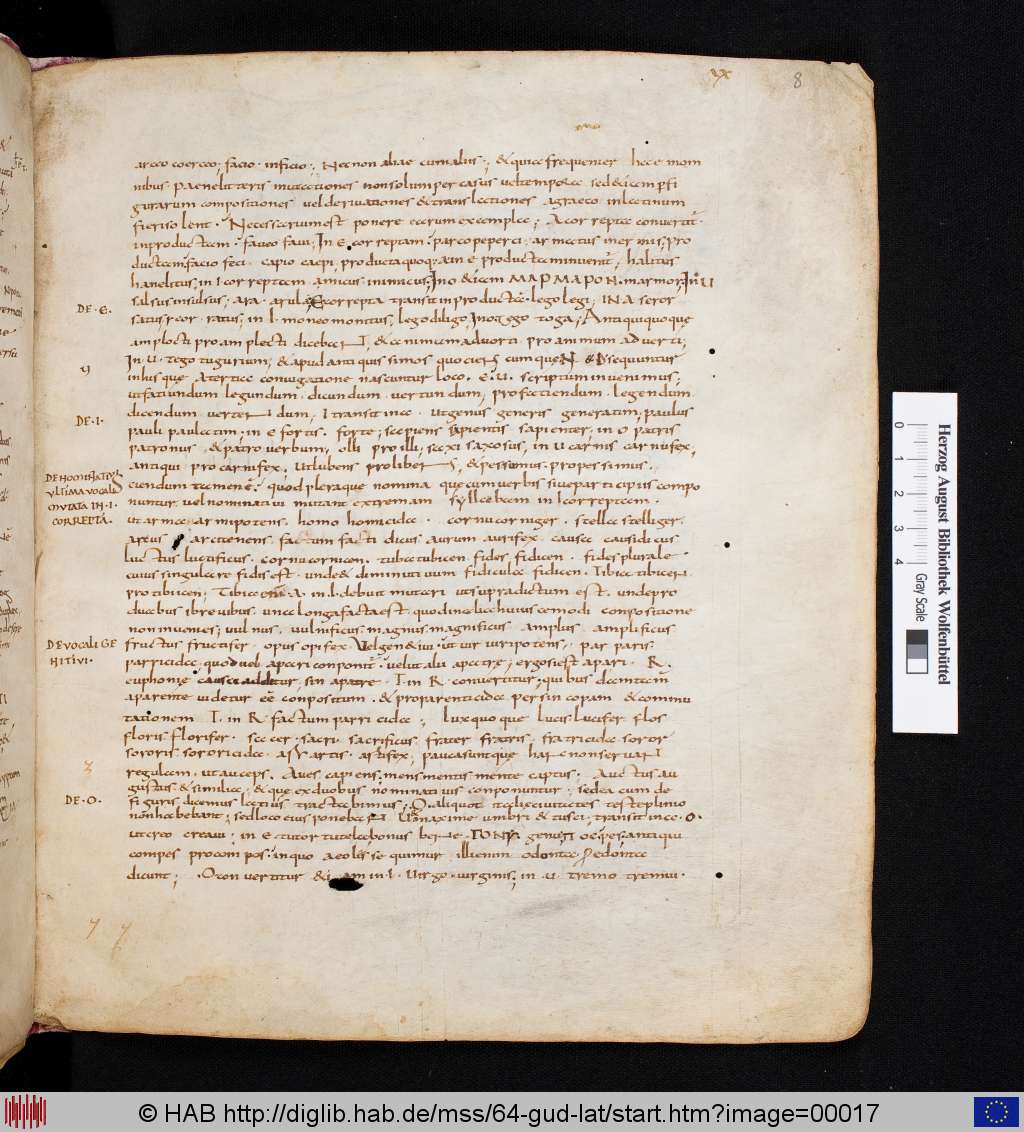 xx
8
arceo coerceo; facio inficio; Necnon aliae cum aliis; & quia frequenter hae in om
nibus paene litteris mutationes non solum per casus vel tempora sed & iam per fi
gurarum compositiones vel derivationes & translationes a graeco in latinum
fieri solent. Necessarium est ponere earum exempla; A correpta convertit
in productam. faveo favi; In e correptam. parco peperci. armatus inermis; pro
ductam facio feci. capio caepi; producta quoq; a in e productam invenit; halitus
hanelitus; in i correptam amicus inimicus; In o & iam ΜΑΡΜΑΡΟΝ. marmor; In u
DE · E ·
salsus insulsus; ara. arula; E correpta transit in producta. lego legi; IN A seror
satus reor. ratus; in i. moneo monitus; lego diligo; In o tego toga; Antiqui quoque
amplocti pro amplecti diceba & animum advorti pro animum adverti;
In u. tego tugurium; & apud antiquissimos quoties cumque sequuntur
in his que a tertia coniugatione nascuntur loco. e. u. scriptum invenimus;
ut faciundum legundum. dicundum. vertundum; pro faciendum legendum
DE · I ·
dicendum verten dum, I transit in a. ut genus generis generatim; paulus
pauli paulatim; in e fortis. forte; sapiens sapientis sapienter, in o patris
patronus & patro verbum; olli pro illi; saxi saxosus, in u carnis carnufex,
DE NOMINATIVI
ULTIMA VOCALI
MUTATA IN · I ·
CORREPTA ·
antiqui pro carnifex, ut lubens pro libens, & pessumus. pro pessimus.
ciendum tamen e. quod pleraque nomina que cum verbis sive participiis compo
nuntur vel nominativi mutant extremam syllabam in i correptam.
ut arma armipotens. homo homicida. cornu corniger. stella stelliger.
arcus arcitenens. factum facti dicus aurum aurifex. causa causidicus
luctus luctificus. cornu cornicen. tuba tubicen. fides fidicen. fides plurale
cuius singulare fidis est. unde & diminutivum fidicula fidicen. tibia tibicen
pro tibiicen; Tibiae enim A. in i. debuit mutari ut supra dictum est. unde pro
duabus i brevibus. una longa facta est quod in alia huiuscemodi compositione
non invenies; vulnus. vulnificus. magnus. magnificus amplus amplificus
DE VOCALI GE
NITIVI ·
fructus fructifer. opus opifex. Vel genetivi. ut vir viripotens. par paris
parricida. quod vel a pari componitur. velut alii a patre; ergo si est a pari. R.
euphonie causa additur, sin a patre T. in R convertitur; quibus damtam
a parente videtur esse conpositum. & pro parenticida per sincopam & commu
tationem T. in R factum parricida; lux quoque lucis lucifer flos
floris florifer. sacer. sacri. sacrificus frater fratris. fratricida soror
sororis sororicida. ars artis. artifex; pauca sunt que hanc non servant
regulam. ut auceps. aves capiens. mens mentis mente captus. Auctus au
gustus & similia; & que ex duobus nominativis conponuntur; sed ea cum de
DE · O ·
figuris dicemus latius tractabimus; O aliquot italiae civitates teste plinio
non habebant; sed loco eius ponebant U. maxime umbri & tusci; transit in a. o.
ut creo creavi; in e tutor tutela bonus bene. genu pes antiqui
compes pro compos. in quo aeolis sequimur illi enim odonta edonta
dicunt; O convertitur & iam in i. virgo. virginis; in u tremo tremui.
© HAB http://diglib.hab.de/mss/64-gud-lat/start.htm?image=00017
Herzog August Bibliothek Wolfenbüttel
Gray Scale
0 1 2 3 4